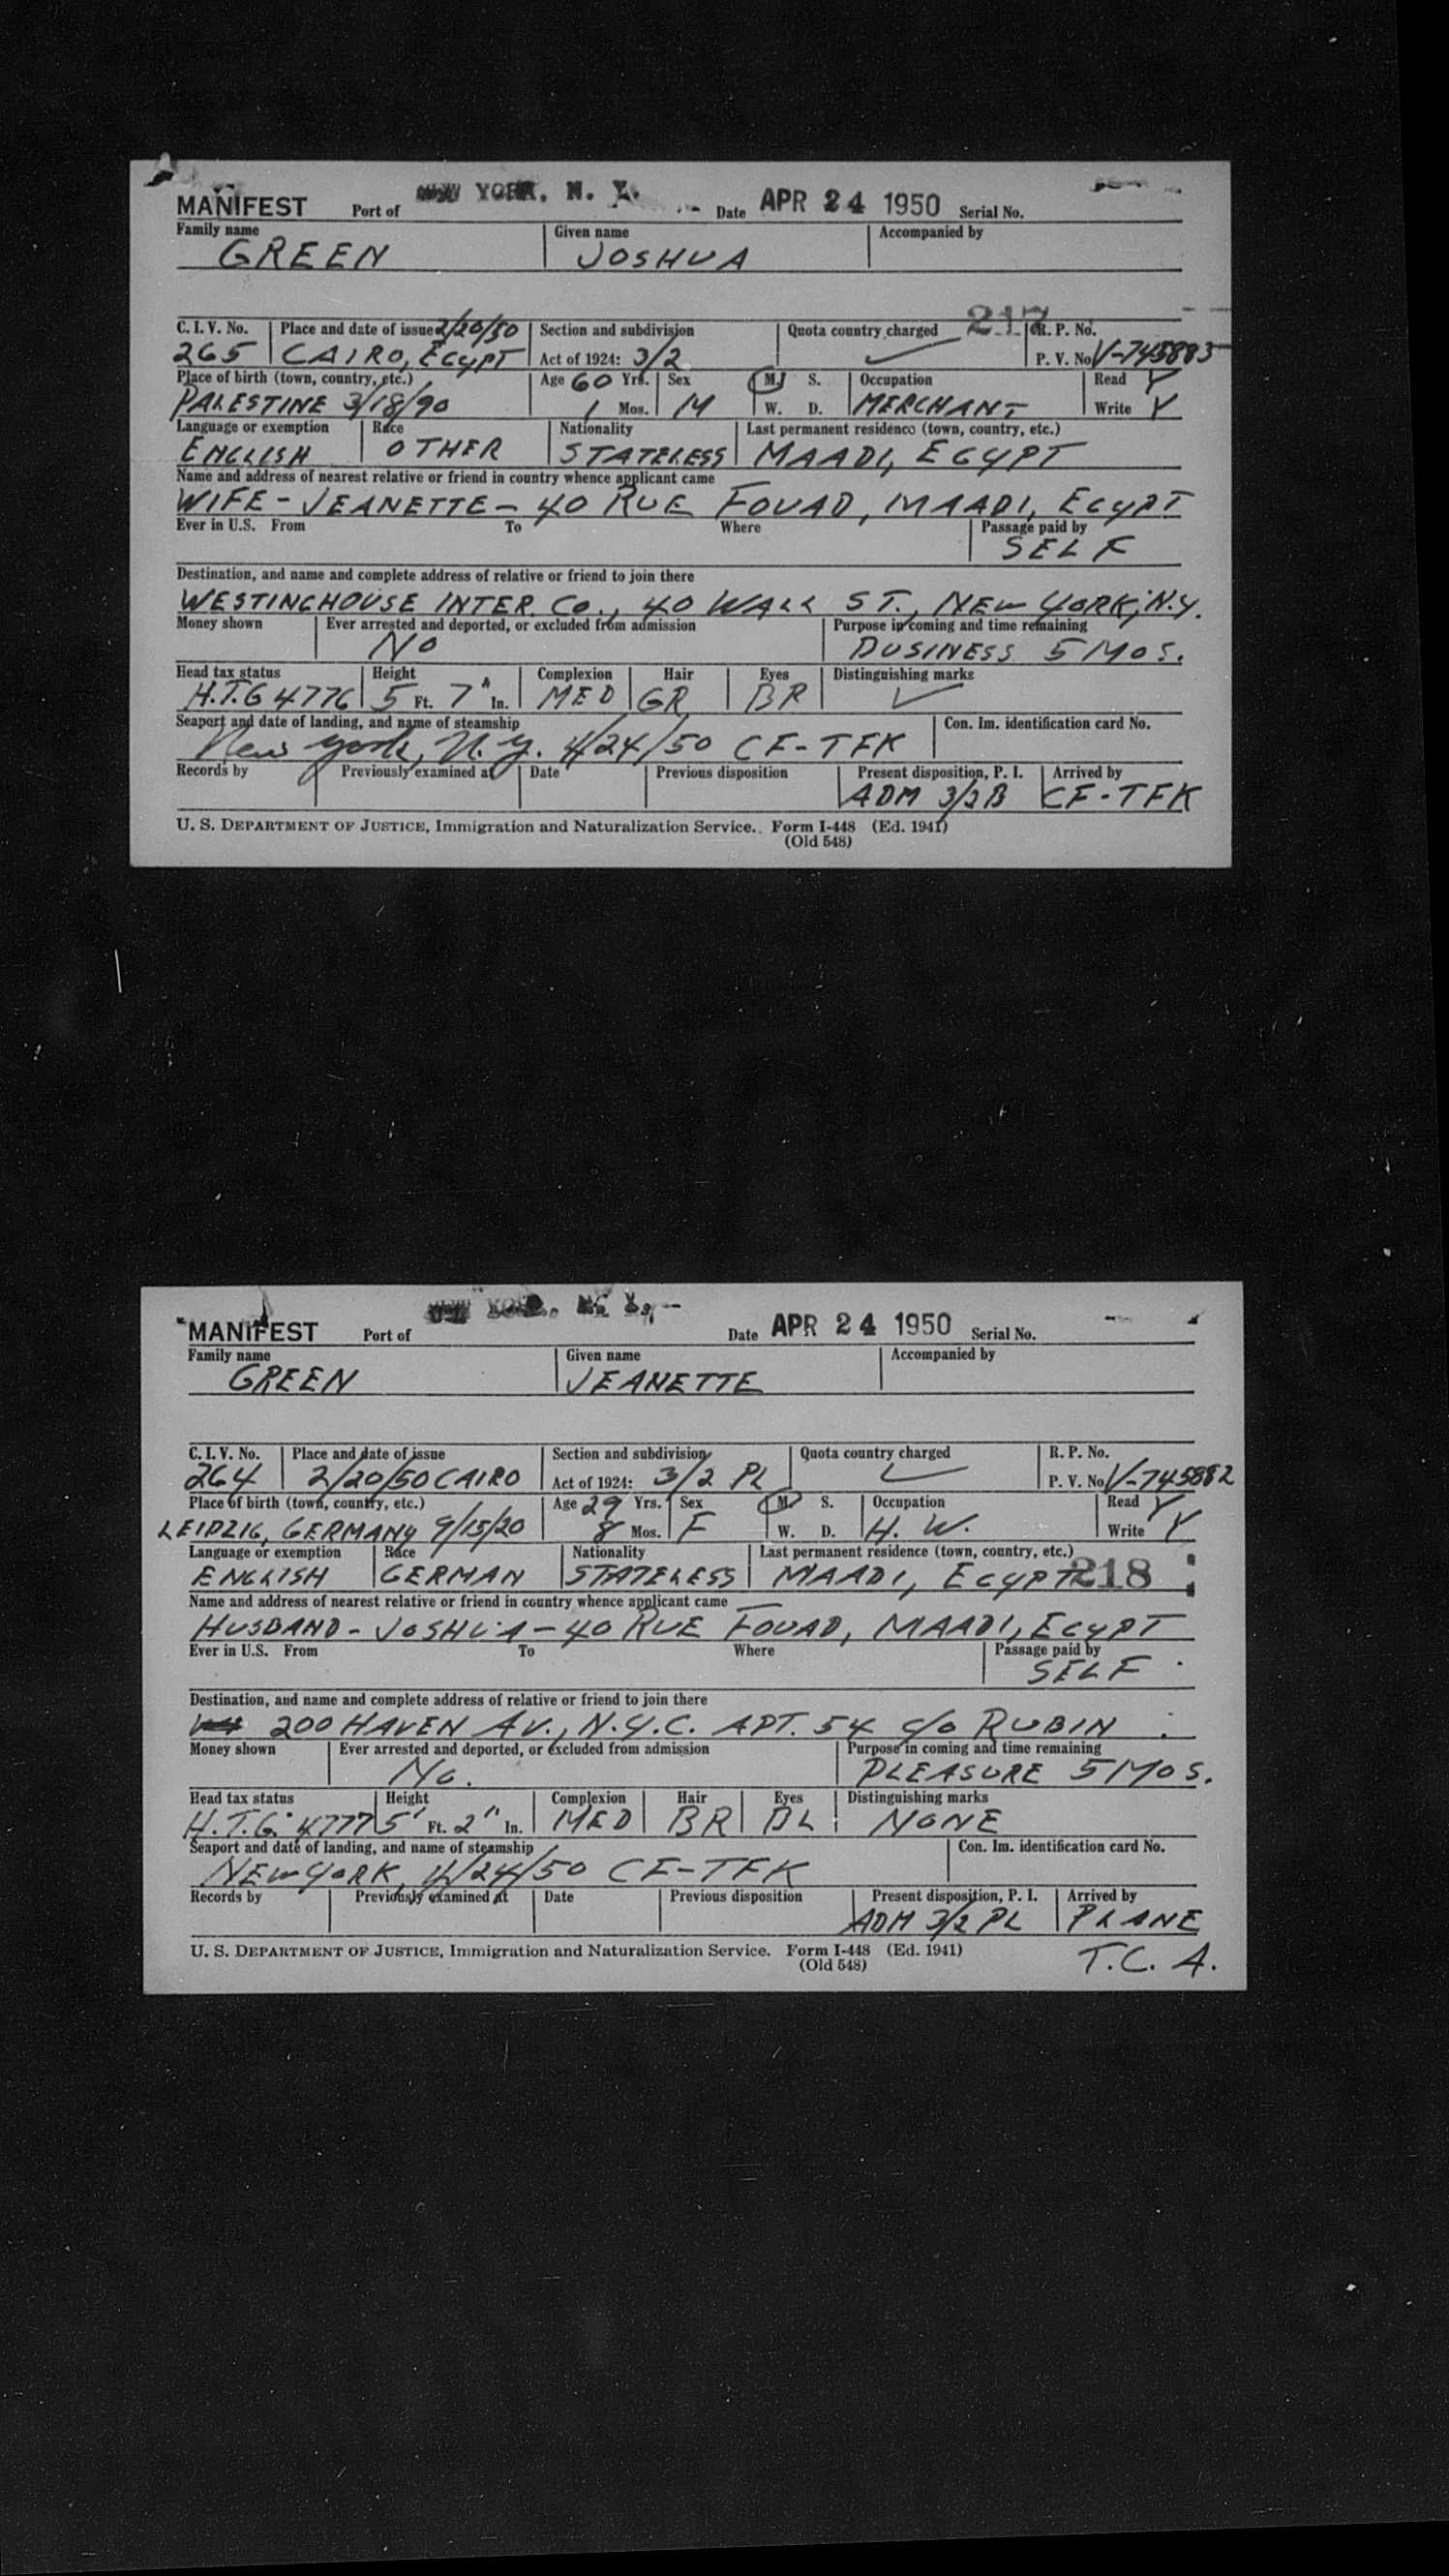 MANIFEST Port of NEW YORK, N. Y. Date APR 24 1950 Serial No.
Family name Given name Accompanied by
GREEN JOSHUA
217
C. I. V. No. Place and date of issue 2/20/50 Section and subdivision Quota country charged R. P. No.
265 CAIRO, EGYPT Act of 1924: 3/2 P. V. No. V-745883
Place of birth (town, country, etc.) Age 60 Yrs. Sex M. S. Occupation Read Y
PALESTINE 3/18/90 1 Mos. M W. D. MERCHANT Write Y
Language or exemption Race Nationality Last permanent residence (town, country, etc.)
ENGLISH OTHER STATELESS MAADI, EGYPT
Name and address of nearest relative or friend in country whence applicant came
WIFE - JEANETTE - 40 RUE FOUAD, MAADI, EGYPT
Ever in U.S. From To Where Passage paid by
SELF
Destination, and name and complete address of relative or friend to join there
WESTINGHOUSE INTER. CO., 40 WALL ST., NEW YORK, N.Y.
Money shown Ever arrested and deported, or excluded from admission Purpose in coming and time remaining
NO BUSINESS 5 MOS.
Head tax status Height Complexion Hair Eyes Distinguishing marks
H.T.G 4776 5 Ft. 7 In. MED GR BR
Seaport and date of landing, and name of steamship Con. Im. identification card No.
New York, N.Y. 4/24/50 CF-TFK
Records by Previously examined at Date Previous disposition Present disposition, P. I. Arrived by
ADM 3/2B CF-TFK
U. S. DEPARTMENT OF JUSTICE, Immigration and Naturalization Service. Form I-448 (Ed. 1941)
(Old 548)
MANIFEST Port of NEW YORK, N. Y. Date APR 24 1950 Serial No.
Family name Given name Accompanied by
GREEN JEANETTE
C. I. V. No. Place and date of issue Section and subdivision Quota country charged R. P. No.
264 2/20/50 CAIRO Act of 1924: 3/2 PL P. V. No. V-745882
Place of birth (town, country, etc.) Age 29 Yrs. Sex M. S. Occupation Read Y
LEIPZIG, GERMANY 9/15/20 8 Mos. F W. D. H. W. Write Y
Language or exemption Race Nationality Last permanent residence (town, country, etc.)
ENGLISH GERMAN STATELESS MAADI, EGYPT 218
Name and address of nearest relative or friend in country whence applicant came
HUSBAND - JOSHUA - 40 RUE FOUAD, MAADI, EGYPT
Ever in U.S. From To Where Passage paid by
SELF
Destination, and name and complete address of relative or friend to join there
200 HAVEN AV., N.Y.C. APT. 54 c/o RUBIN
Money shown Ever arrested and deported, or excluded from admission Purpose in coming and time remaining
No. PLEASURE 5 MOS.
Head tax status Height Complexion Hair Eyes Distinguishing marks
H.T.G. 4777 5' Ft. 2" In. MED BR BL NONE
Seaport and date of landing, and name of steamship Con. Im. identification card No.
NEW YORK, 4/24/50 CF-TFK
Records by Previously examined at Date Previous disposition Present disposition, P. I. Arrived by
ADM 3/2 PL PLANE
U. S. DEPARTMENT OF JUSTICE, Immigration and Naturalization Service. Form I-448 (Ed. 1941)
(Old 548) T.C.A.